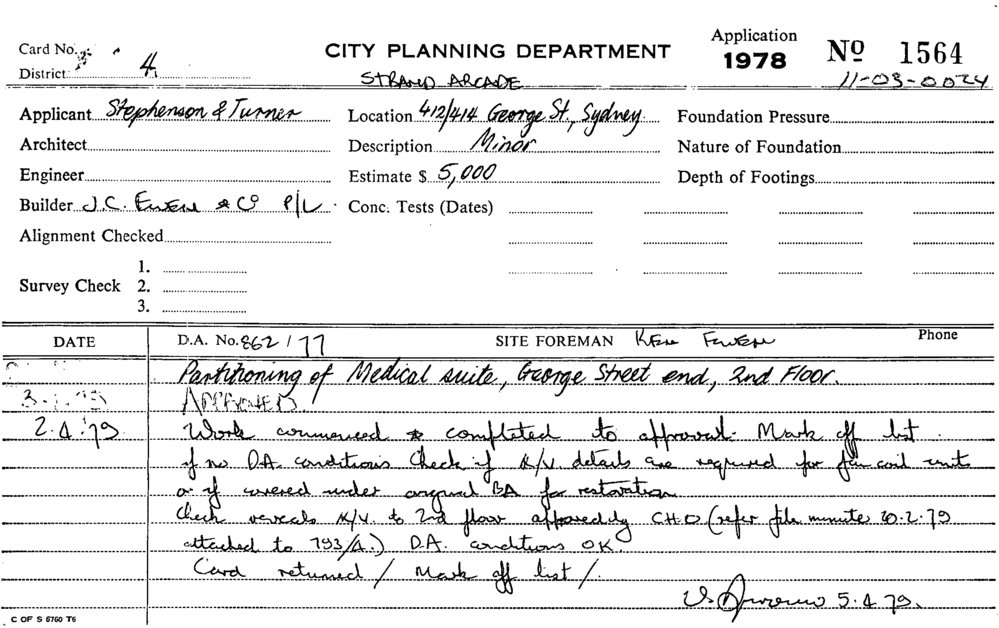 Card No. CITY PLANNING DEPARTMENT Application
1978 No 1564
District 4 STRAND ARCADE 11-03-0024
Applicant Stephenson & Turner Location 412/414 George St., Sydney. Foundation Pressure
Architect Description Minor Nature of Foundation
Engineer Estimate $ 5,000 Depth of Footings
Builder J.C. Ewen & Co P/L. Conc. Tests (Dates)
Alignment Checked
1.
Survey Check 2.
3.
DATE D.A. No. 862/77 SITE FOREMAN Ken Ewen Phone
Partitioning of Medical suite, George Street end, 2nd Floor.
APPROVED
2.4.79 Work commenced & completed to approval. Mark off list
if no D.A. conditions. Check if K/V. details are required for fan coil units
or if covered under original BA for restoration
Check reveals K/V. to 2nd floor approved by C.H.O (refer file minute 20.2.79
attached to 793/4.) D.A. conditions OK.
Card returned / Mark off list /.
5.4.79.
C OF S 6760 T6